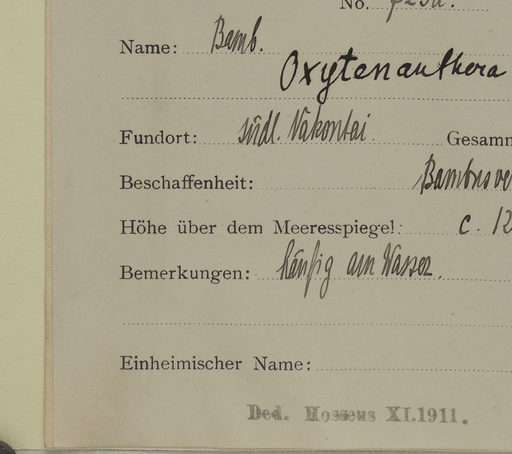 No.
Name: Bamb.
Oxytenanthera
Fundort: südl. Vakontai. Gesamm
Beschaffenheit: Bambus ve
Höhe über dem Meeresspiegel: c. 12
Bemerkungen: häufig am Wasser.
Einheimischer Name:
Ded. Hosseus XI.1911.